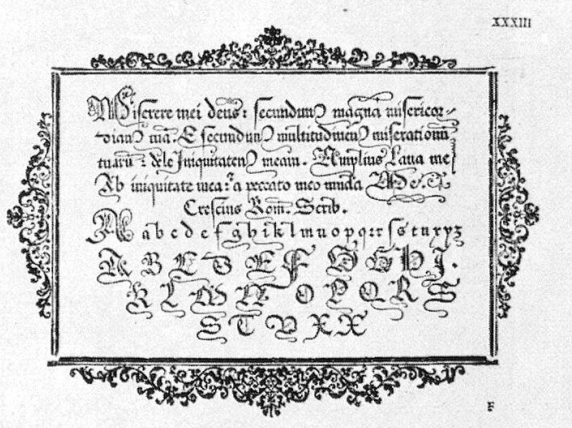 XXXIII
Miserere mei deus: secundum magnã misericor-
diam tuã. E secundum multitudinem miserationũ
tuarũ: dele Iniquitatem meam. Amplius Laua me
Ab iniquitate mea: a peccato meo munda Me. &
Crescius Rom. Scrib.
A a b c d e f g h i k l m n o p q r s s t u x y z
A B C D E F G H I.
K L M N O P Q R S
S T V X X
F